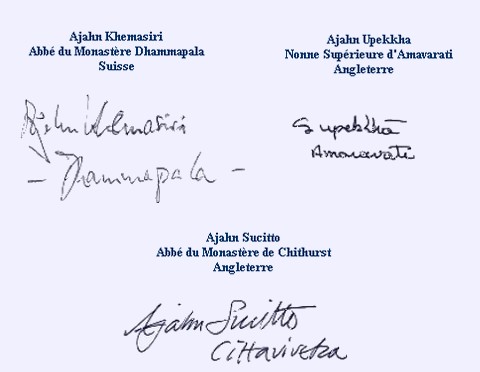 Ajahn Khemasiri
Abbé du Monastère Dhammapala
Suisse
Ajahn Khemasiri
- Dhammapala -
Ajahn Upekkha
Nonne Supérieure d'Amavarati
Angleterre
upekkhā
Amaravati
Ajahn Sucitto
Abbé du Monastère de Chithurst
Angleterre
Ajahn Sucitto
Cittaviveka